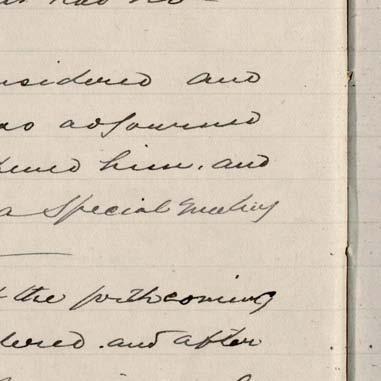 had no
nsidered and
as adjourned
him. and
a Special Meeting
the forthcoming
dered. and after